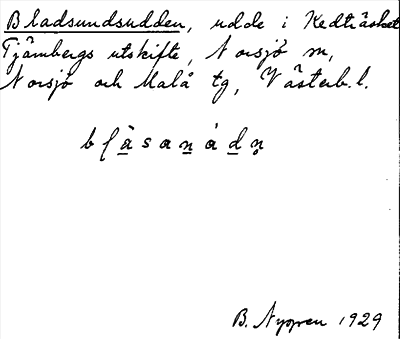 Bladsundsudden, udde i Kedträsket
Tjämbergs utskifte, Norsjö sn,
Norsjö och Malå tg, Västerb. l.
B. Nygren 1929